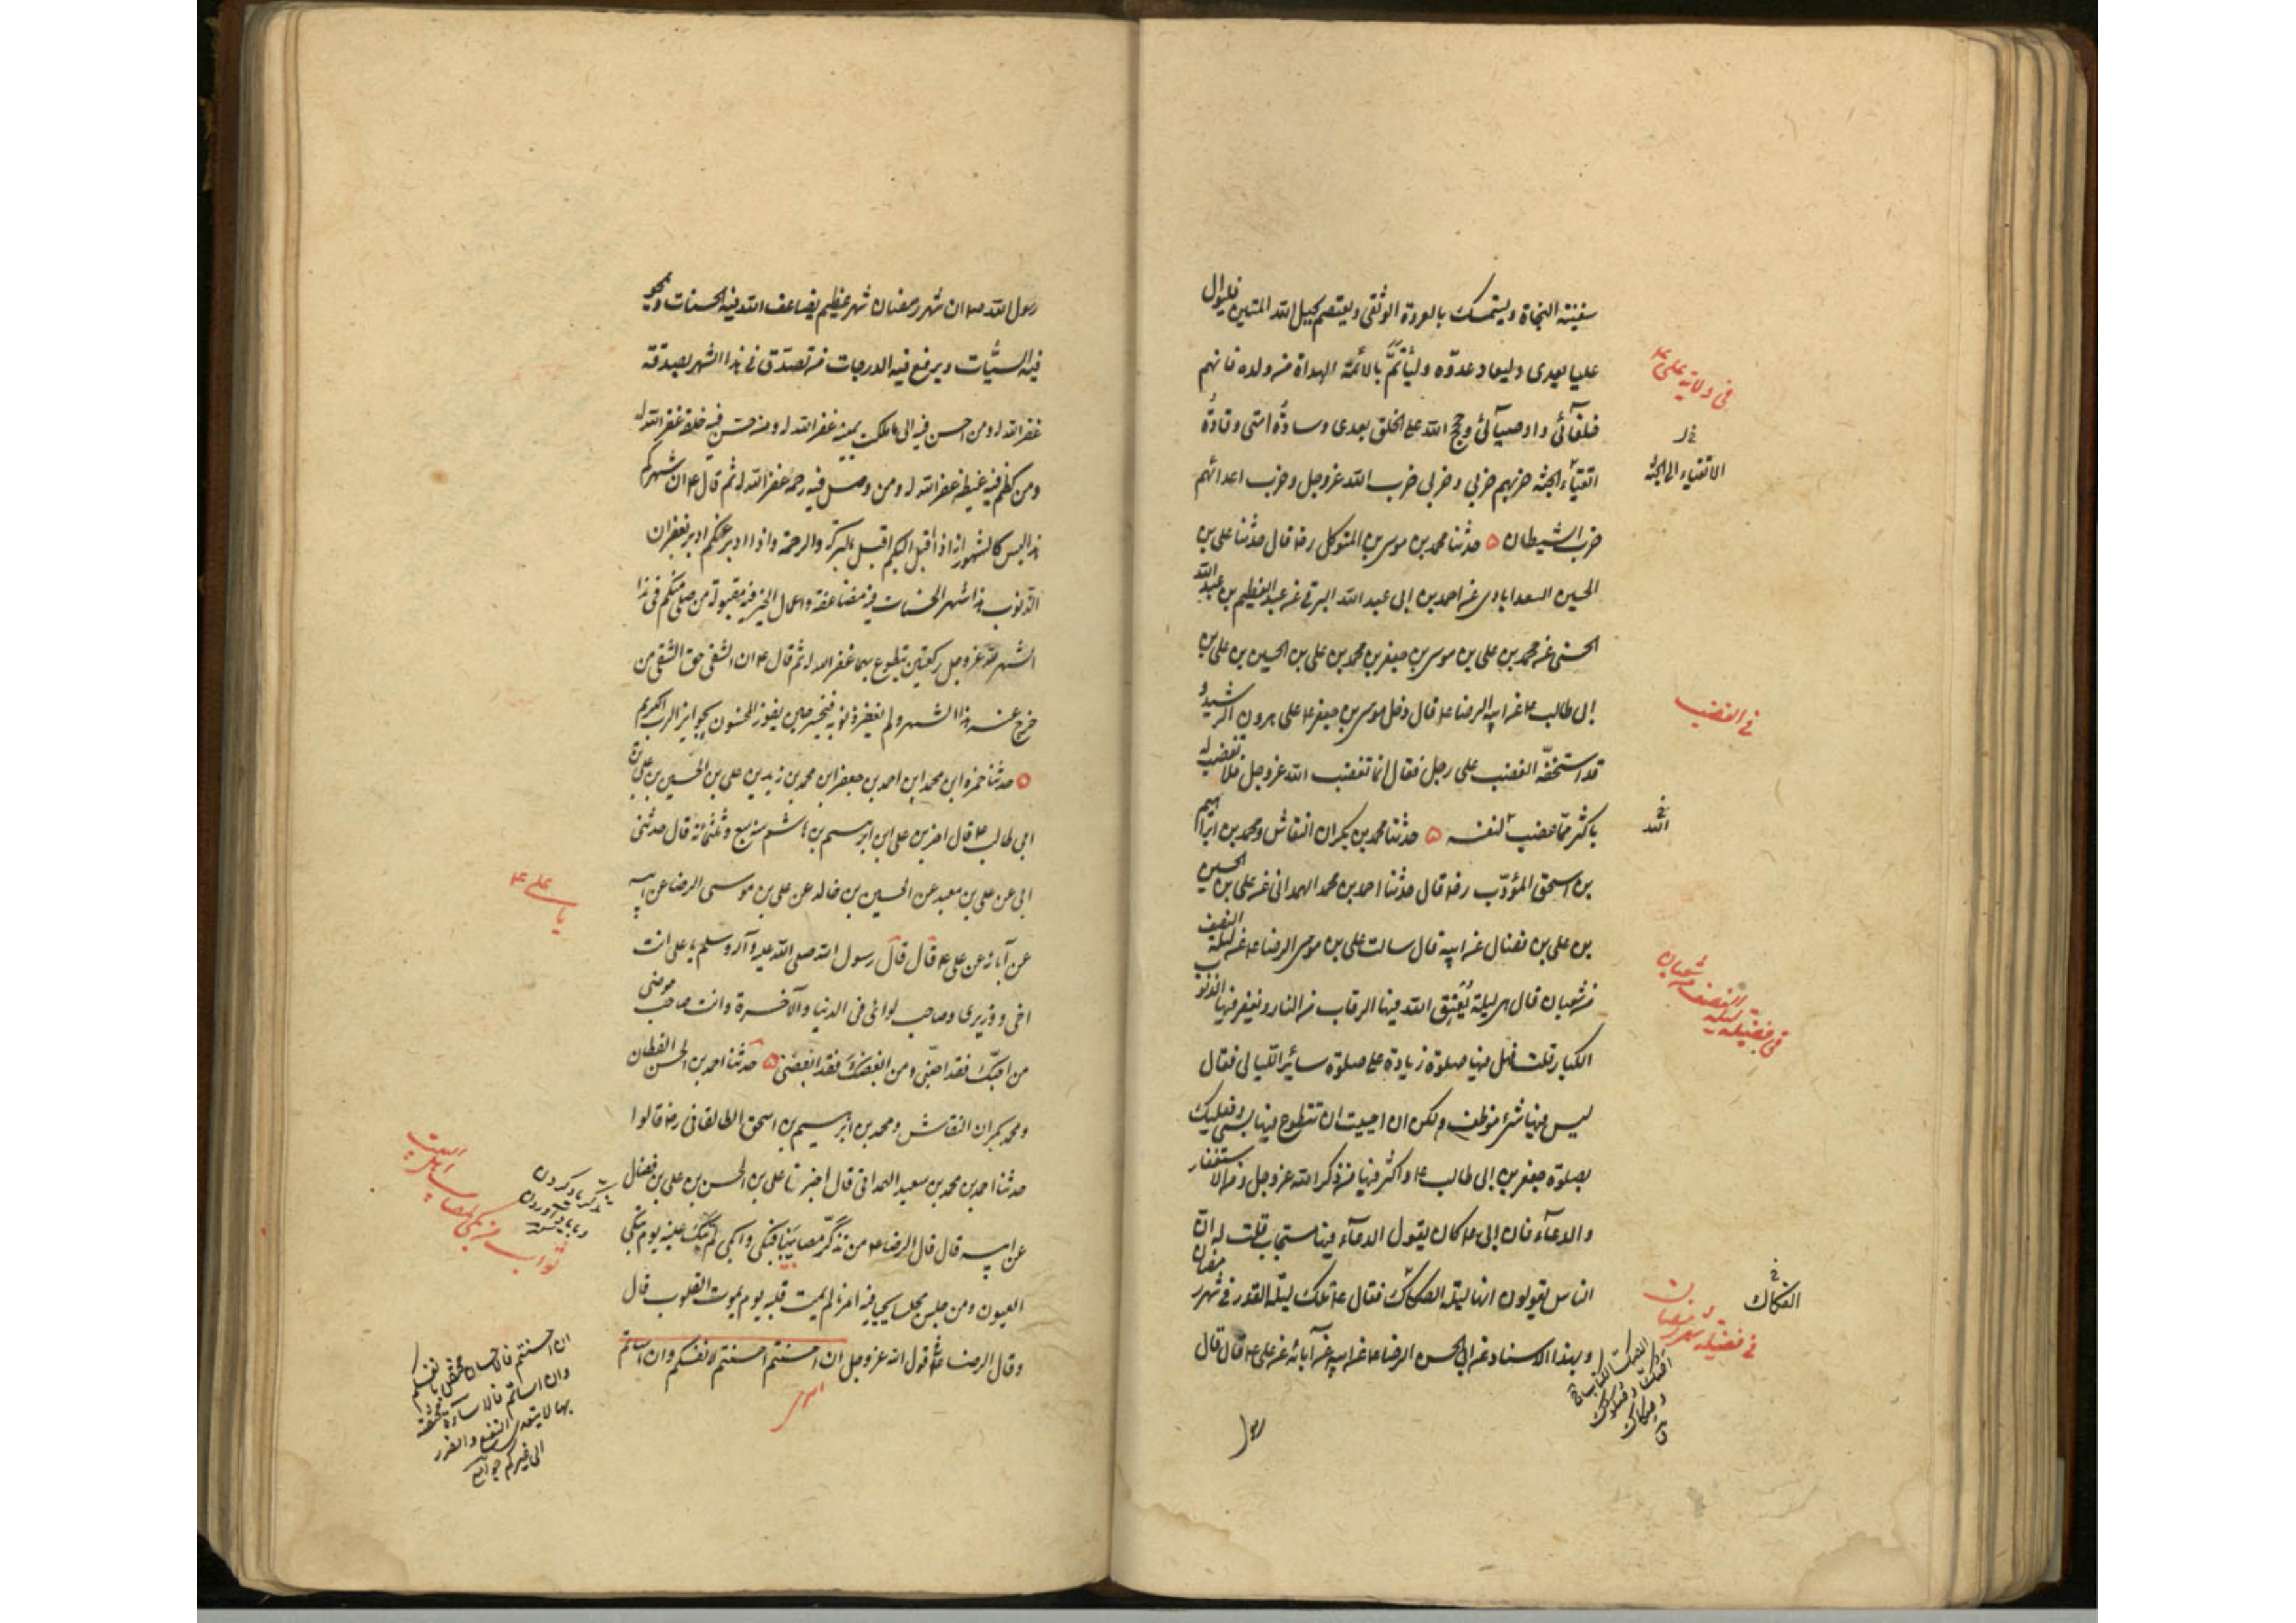 سفينة النجاة ويستمسك بالعروة الوثقى ويعتصم بحبل الله المتين فليوال
عليا بعدى وليعاد عدوّه وليأتمّ بالائمّة الهداة من ولده فانهم
خلفآئى واوصيآئى وحجج الله على الخلق بعدى وسادةُ امتى وقادةُ
اتقيآء الجنّة حزبهم حزبى وحزبى حزب الله عزوجل وحزب اعدائهم
حزب الشيطان ۵ حدثنا محمد بن موسى بن المتوكل رضه قال حدثنا على بن
الحسين السعدابادى عن احمد بن ابى عبد الله البرقى عن عبد العظيم بن عبد الله
الحسنى عن محمد بن على بن موسى بن جعفر بن محمد بن على بن الحسين بن على بن
ابى طالب ع عن ابيه الرضا ع قال دخل موسى بن جعفر ع على هرون الرشيد و
قد استخفّه الغضب على رجل فقال انما تغضب الله عزوجل فلا تغضب له
باكثر مما غضب لنفسه ۵ حدثنا محمد بن بكران النقاش ومحمد بن ابراهيم
بن اسحق المؤدّب رضه قال حدثنا احمد بن محمد الهمدانى عن على بن الحسين
بن على بن فضال عن ابيه قال سالت على بن موسى الرضا ع عن ليلة النصف
من شعبان قال هى ليلة يُعتِق الله فيها الرقاب من النار ويغفر فيها الذنوب
الكبار قلت فهل فيها صلوة زيادة على صلوة سائر الليالى فقال
ليس فيها شئ موظف ولكن ان احببت ان تتطوع فيها بشئ فعليك
بصلوة جعفر بن ابى طالب ع واكثر فيها من ذكر الله عزوجل ومن الاستغفار
والدعآء فان ابى ع كان يقول الدعآء فيها مستجاب قلت له ان
الناس يقولون انها ليلة الصكاك فقال ع تلك ليلة القدر فى شهر رمضان
وبهذا الاسناد عن ابى الحسن الرضا ع عن ابيه عن آبائه عن على ع قال قال
رسول
فى ولاية على ع
خ ل
الاتقياء الى الجنة
فى الغضب
خ
الله
فى فضيلة ليلة النصف من شعبان
خ
الفكاك
فى فضيلة شهر رمضان
رسول الله ص ان شهر رمضان شهر عظيم يضاعف الله فيه الحسنات ويمحو
فيه السيّئات ويرفع فيه الدرجات من تصدّق فى هذا الشهر بصدقة
غفر الله له ومن احسن فيه الى ما ملكت يمينه غفر الله له ومن حسّن فيه خلقه غفر الله له
ومن كظم فيه غيظه غفر الله له ومن وصل فيه رحمه غفر الله له ثم قال ع ان شهركم
هذا ليس كالشهور انه اذا أقبل اليكم اقبل بالبركة والرحمة واذا ادبر عنكم ادبر بغفران
الذنوب هذا شهر الحسنات فيه مضاعفة واعمال الخير فيه مقبولة من صلى منكم فى هذا
الشهر لله عزوجل ركعتين تطوع بهما غفر الله له ثم قال ع ان الشقى حق الشقى من
خرج عنه هذا الشهر ولم تغفر ذنوبه فيخسر حين يفوز المحسنون بجوايز الرب الكريم
۵ حدثنا حمزه ابن محمد ابن احمد بن جعفر ابن محمد بن زيد بن على بن الحسين بن على بن
ابى طالب ع قال اخبرنى على ابن ابرهيم بن هاشم سنة سبع وثلثمائة قال حدثنى
ابى عن على بن معبد عن الحسين بن خالد عن على بن موسى الرضا عن ابيه
عن آبائه عن على ع قال قال رسول الله صلى الله عليه وآله وسلم يا على انت
اخى ووزيرى وصاحب لوائى فى الدنيا والآخرة وانت صاحب حوضى
من احبّك فقد احبّنى ومن ابغضك فقد ابغضنى ۵ حدثنا احمد بن الحسن القطان
ومحمد بكران النقاش ومحمد بن ابرهيم بن اسحق الطالقانى رضه قالوا
حدثنا احمد بن محمد بن سعيد الهمدانى قال اخبرنا على بن الحسن بن على بن فضال
عن ابيه قال قال الرضا ع من تذكّر مصابنا فبكى وابكى لم تبك عينه يوم تبكى
العيون ومن جلس مجلسا يحيى فيه امرنا لم يمت قلبه يوم يموت القلوب قال
وقال الرضا ع فى قول الله عزوجل ان احسنتم احسنتم لانفسكم وان اسأتم
يا على ع
ثواب من بكى لمصاب اهل البيت
تذكر ياد كردن
وبياد آوردن
ان احسنتم فالاحسان مختص بانفسكم
وان اسأتم فالاساءة مختصة
بها لا يتعدى النفع والضرر
الى غيركم جوامع